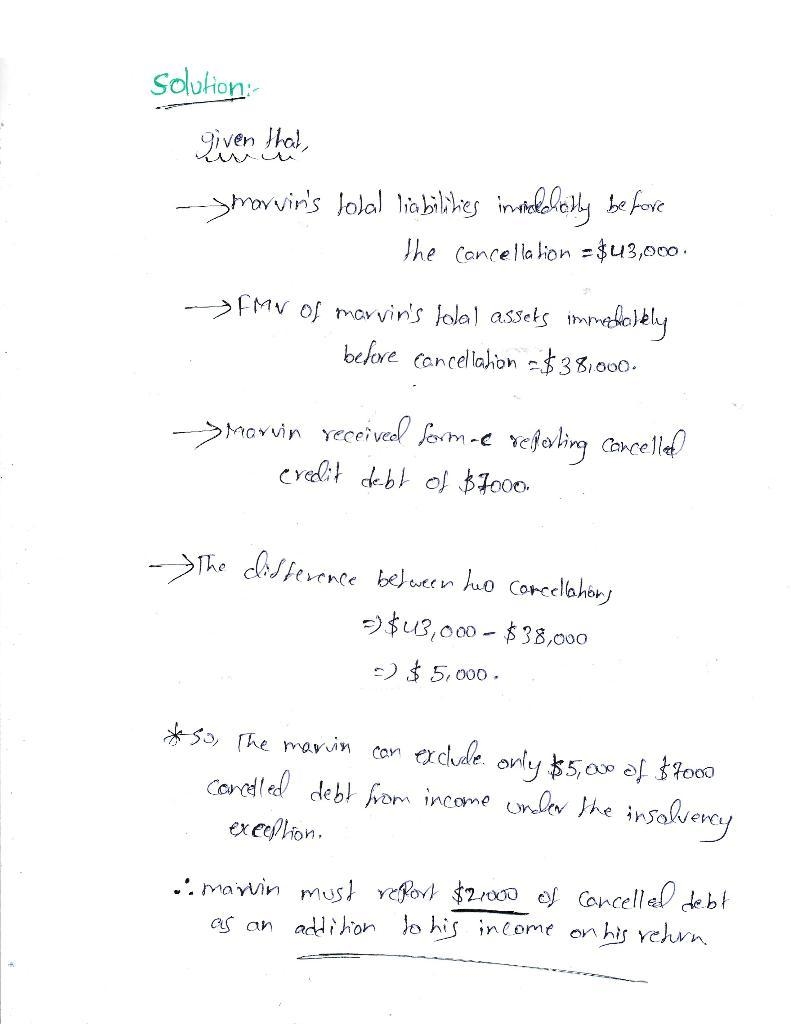 Solution:-
given that,
→ marvin's total liabilities immediately before
the cancellation = $43,000.
→ FMV of marvin's total assets immediately
before cancellation = $38,000.
→ Marvin received form-c reporting cancelled
credit debt of $7000.
→ The difference between two cancellations
⇒ $43,000 - $38,000
⇒ $5,000.
* so, The marvin can exclude only $5,000 of $7000
cancelled debt from income under the insolvency
exception.
∴ marvin must report $2,000 of cancelled debt
as an addition to his income on his return